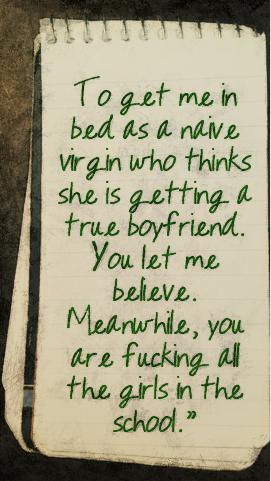 To get me in
bed as a naive
virgin who thinks
she is getting a
true boyfriend.
You let me
believe.
Meanwhile, you
are fucking all
the girls in the
school.”